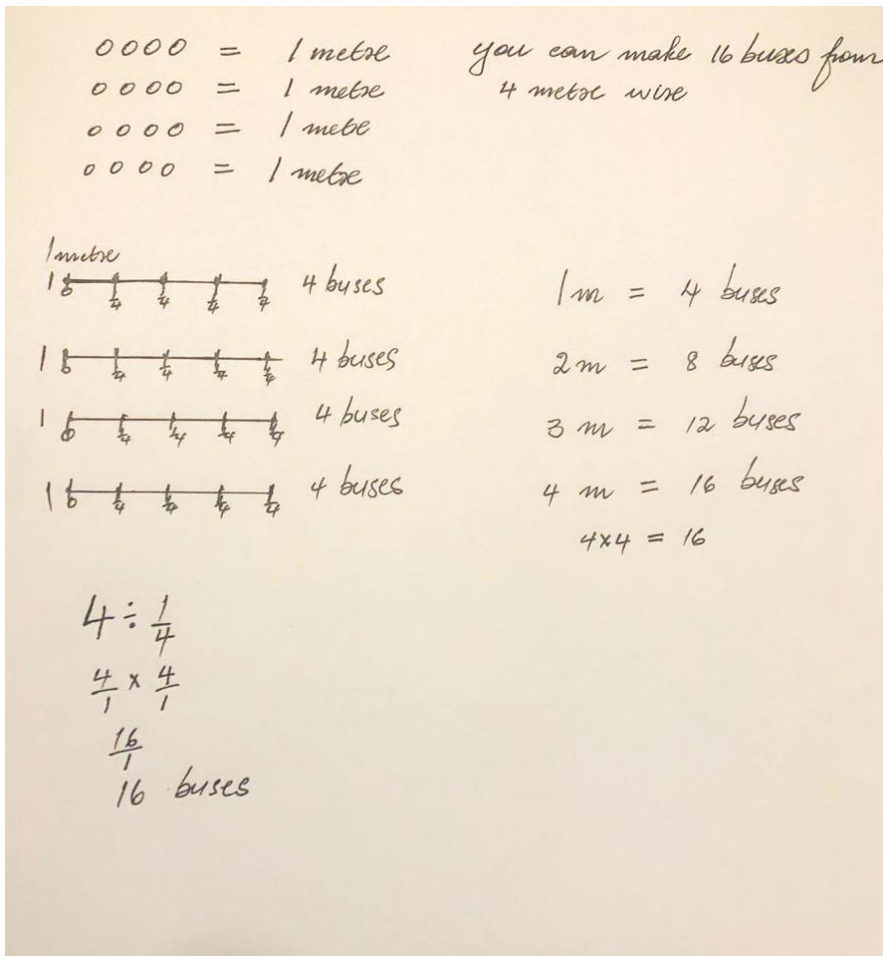 0000 = 1 metre
0000 = 1 metre
0000 = 1 mete
0000 = 1 metre
you can make 16 buses from
4 metre wire
1 metre
1 0 1/4 1/4 1/4 1/4 4 buses
1 0 1/4 1/4 1/4 1/4 4 buses
1 0 1/4 1/4 1/4 1/4 4 buses
1 0 1/4 1/4 1/4 1/4 4 buses
1m = 4 buses
2m = 8 buses
3 m = 12 buses
4 m = 16 buses
4x4 = 16
4 ÷ 1/4
4/1 x 4/1
16/1
16 buses